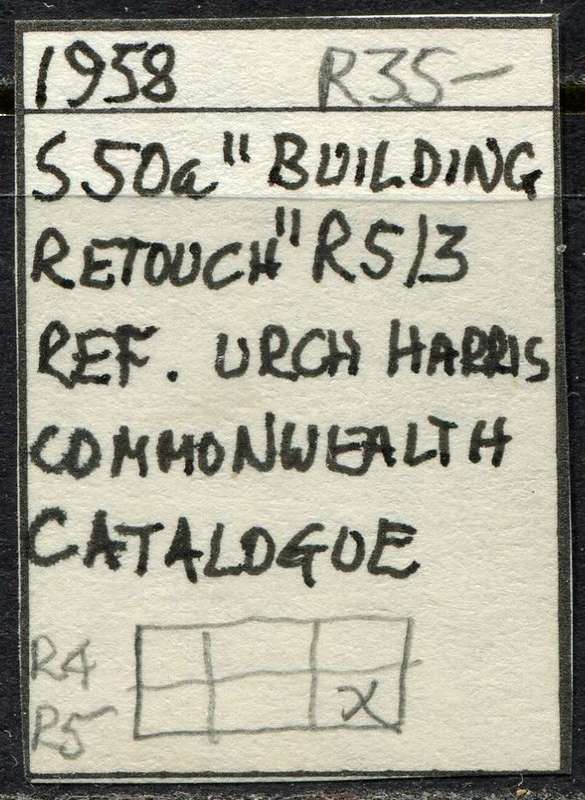 1958 R35-
S50a "BUILDING
RETOUCH" R5/3
REF. URCH HARRIS
COMMONWEALTH
CATALOGUE
R4
R5 X